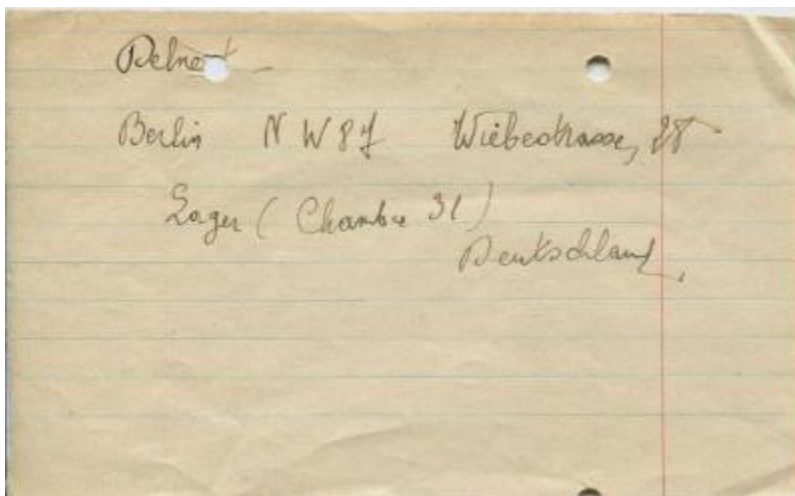 Berlin N W 87 Wiebestrasse, 28
Lager ( Chambre 31 )
Deutschland,